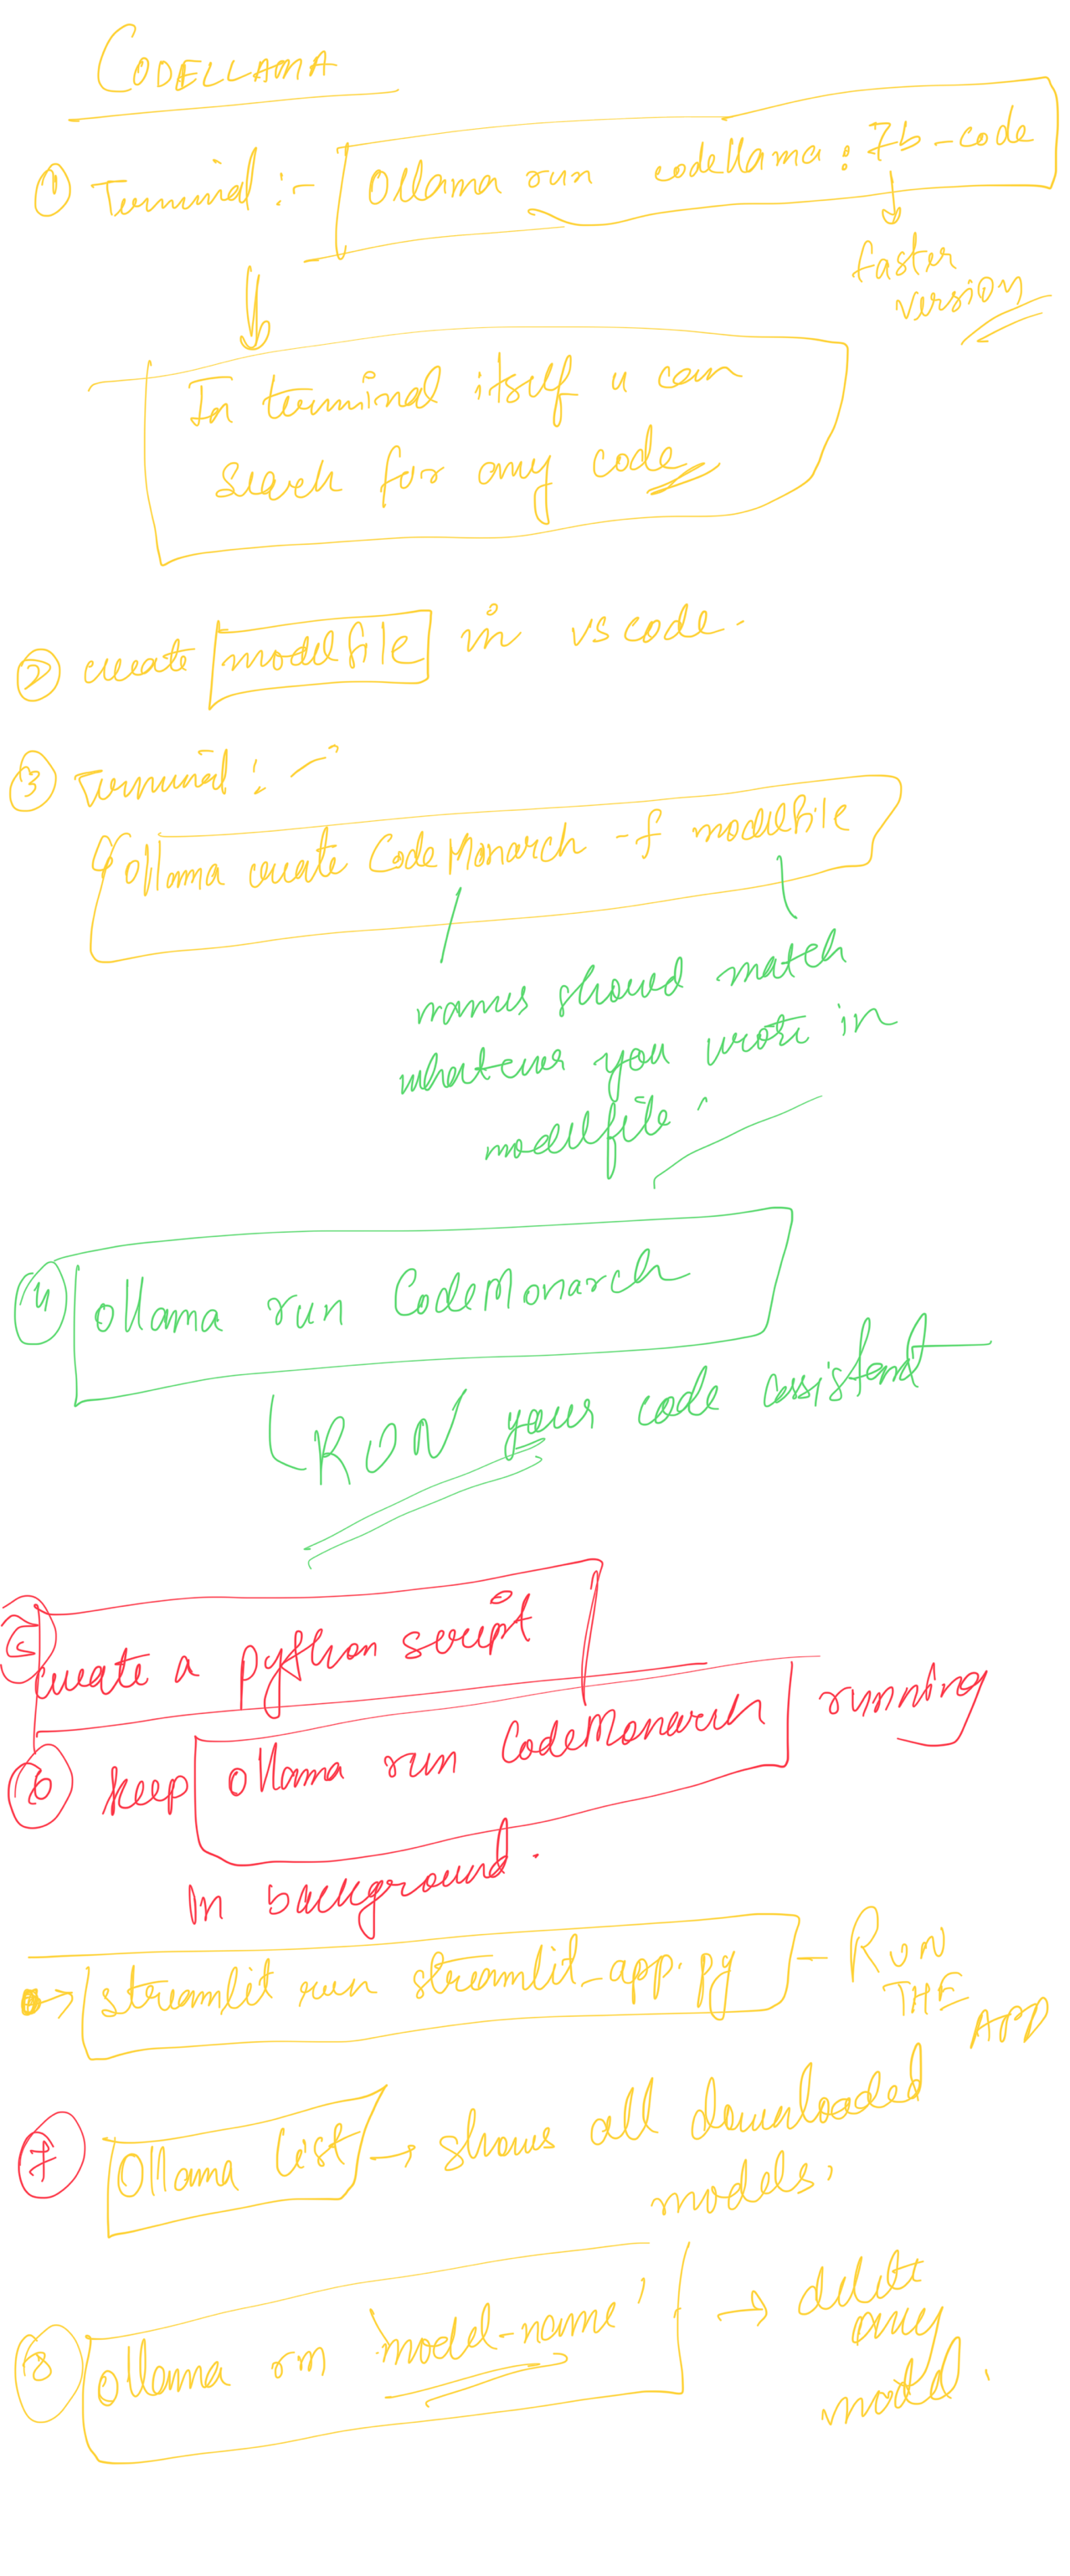 CODELLAMA
① Terminal :- Ollama run codellama : 7b-code
faster
version
In terminal itself u can
search for any code
② create modelfile in vscode.
③ Terminal :-
ollama create CodeMonarch -f modelfile
names should match
whatever you wrote in
modelfile.
④ ollama run CodeMonarch
RUN your code assistant
⑤ create a python script
⑥ keep ollama run CodeMonarch running
in background.
→ streamlit run streamlit_app.py - RUN
THE
APP
⑦ Ollama list → shows all downloaded
models.
⑧ ollama rm 'model-name' → delete
any
model.